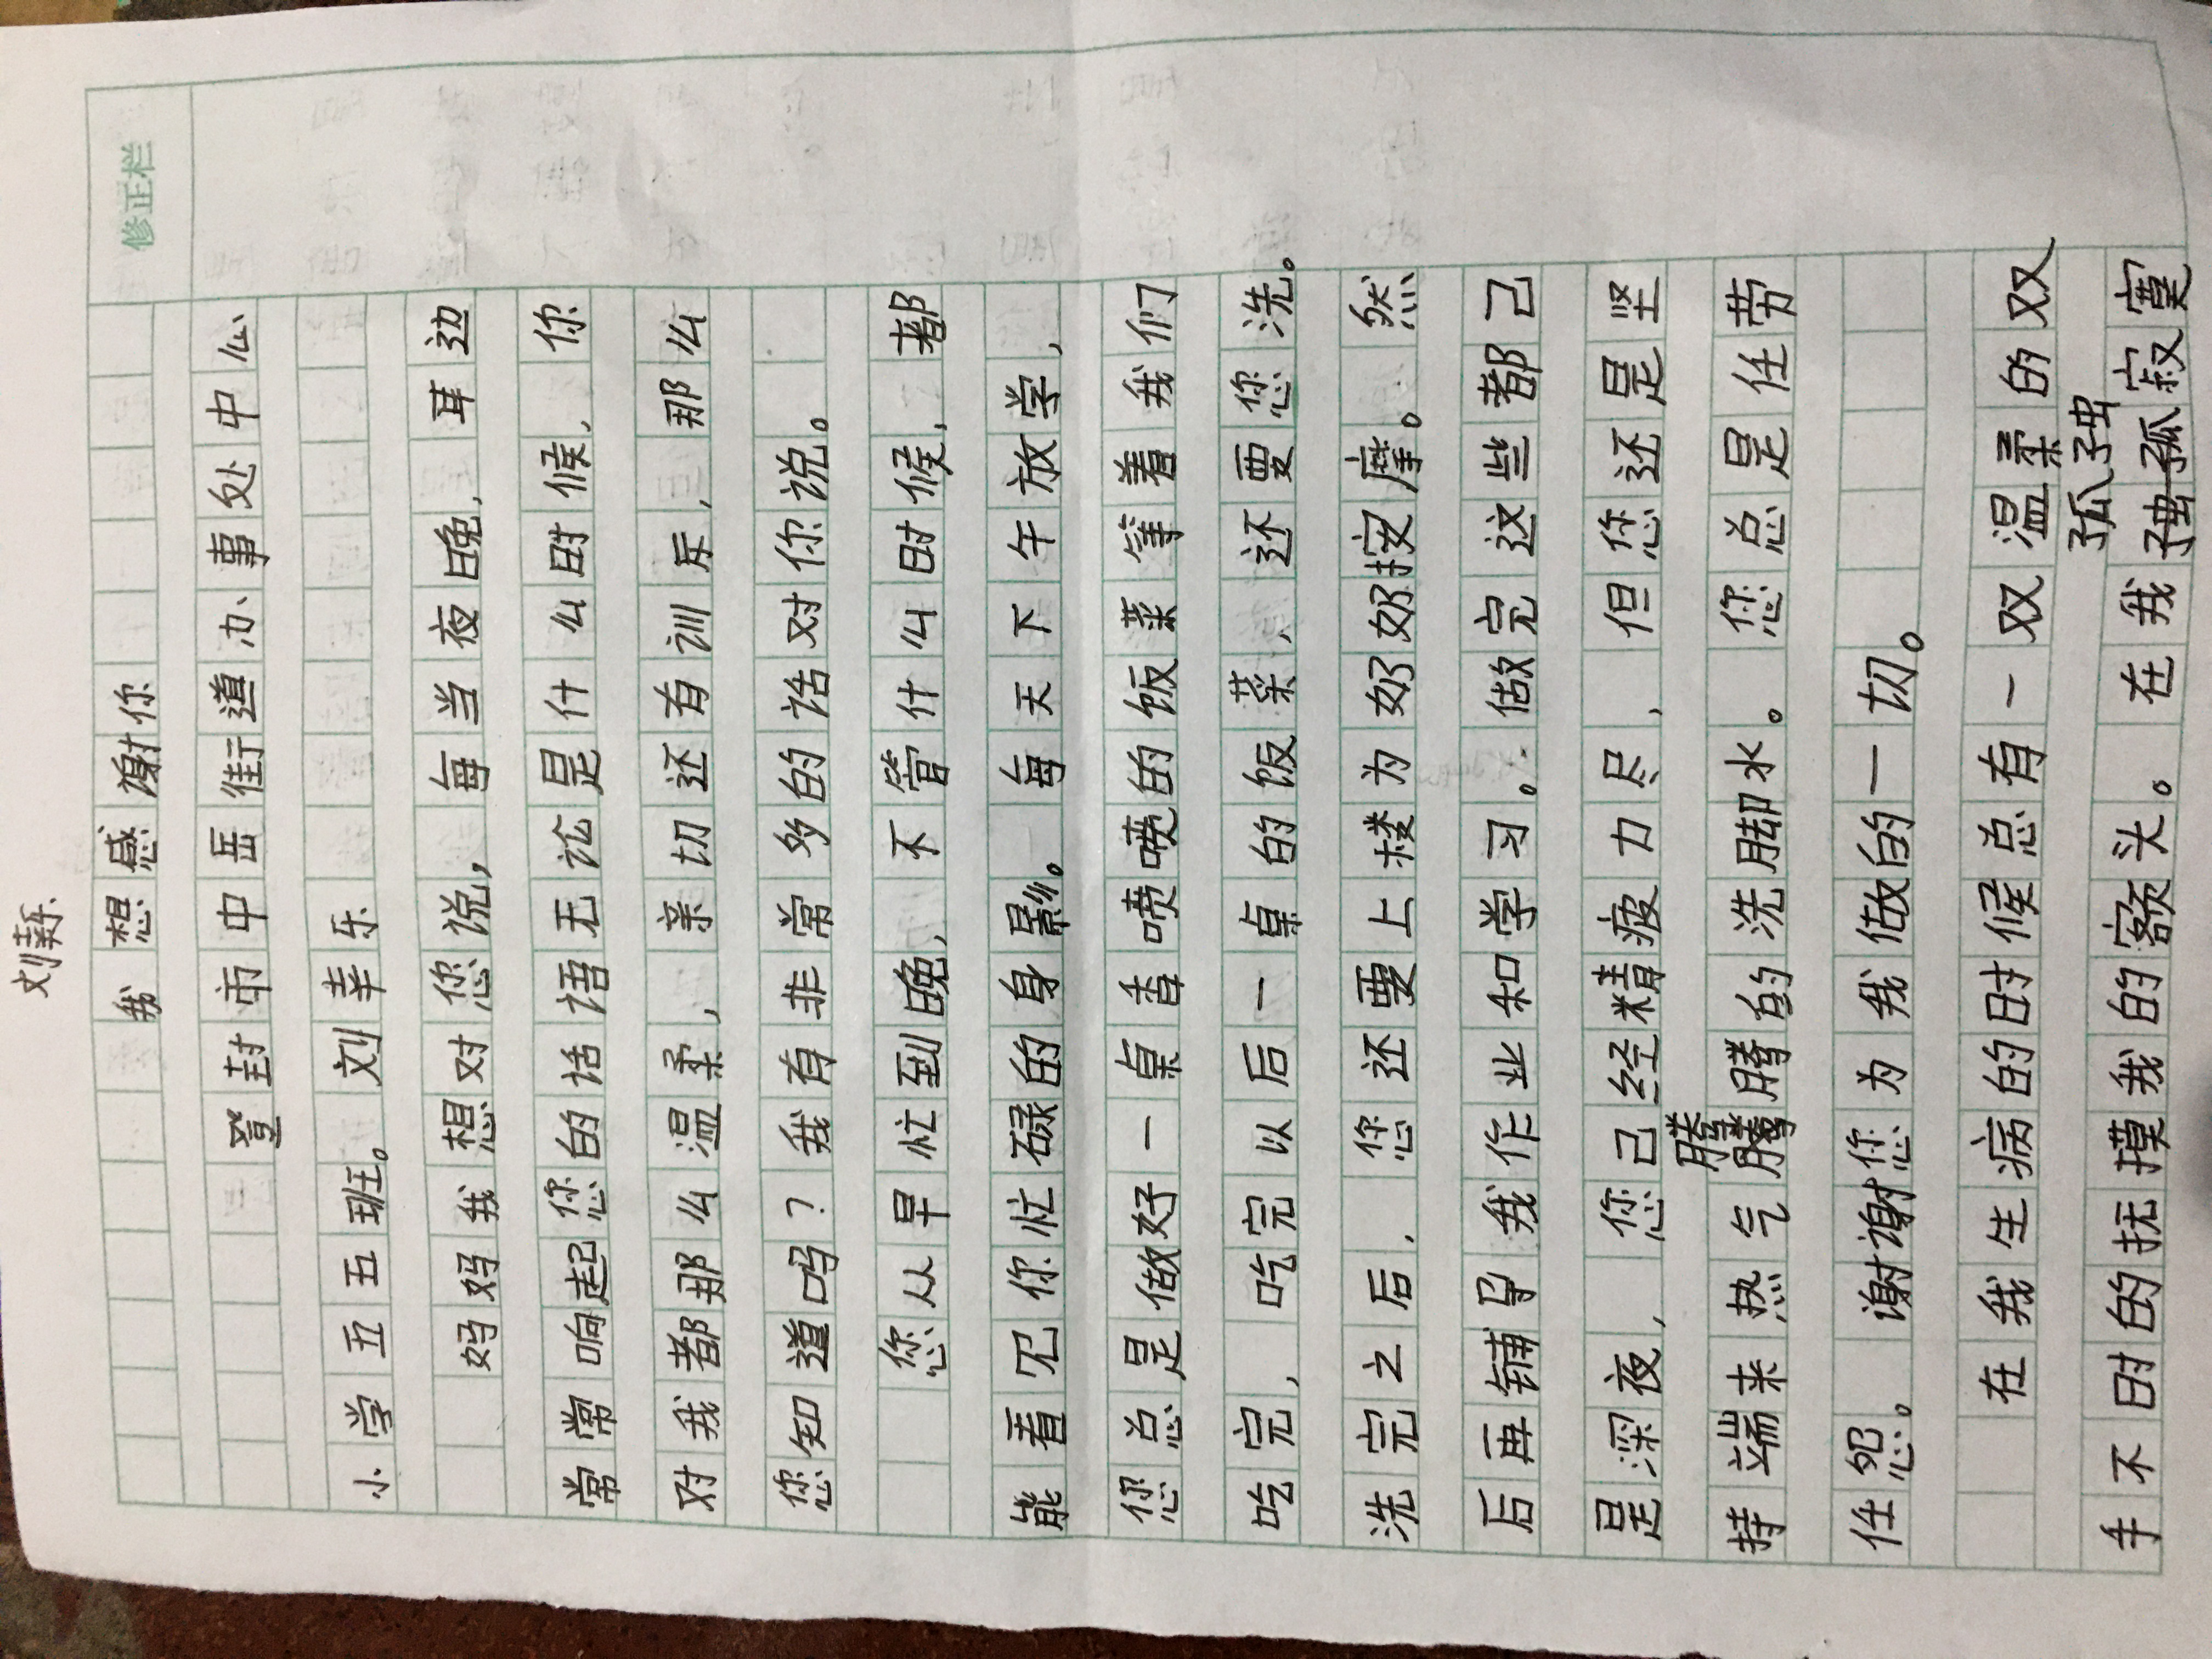 修正栏
我想感谢你
登封市中岳街道办事处中心
小学五五班。刘幸乐
妈妈我想对您说，每当夜晚，耳边
常常响起您的话语无论是什么时候，你
对我都那么温柔，亲切还有训斥，那么
您知道吗？我有非常多的话对你说。
您从早忙到晚，不管什么时候，都
能看见你忙碌的身影。每天下午放学，
您总是做好一桌香喷喷的饭菜等着我们
吃完，吃完以后一桌的饭菜，还要您洗。
洗完之后，您还要上楼为奶奶按摩。然
后再铺导我作业和学习。做完这些都己
是深夜，您己经精疲力尽，但您还是坚
持端来热气腾腾的洗脚水。您总是任劳
任怨。谢谢您为我做的一切。
在我生病的时候总有一双温柔的双
手不时的抚摸我的额头。在我孤独寂寞